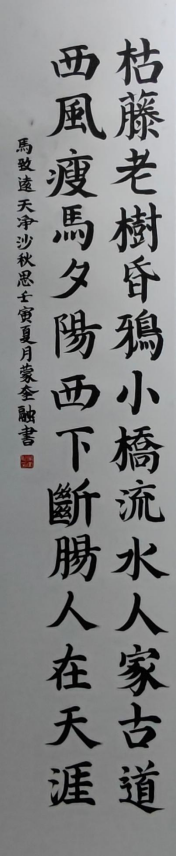 枯藤老樹昏鴉小橋流水人家古道
西風瘦馬夕陽西下斷腸人在天涯
馬致遠天淨沙秋思壬寅夏月蒙奎融書